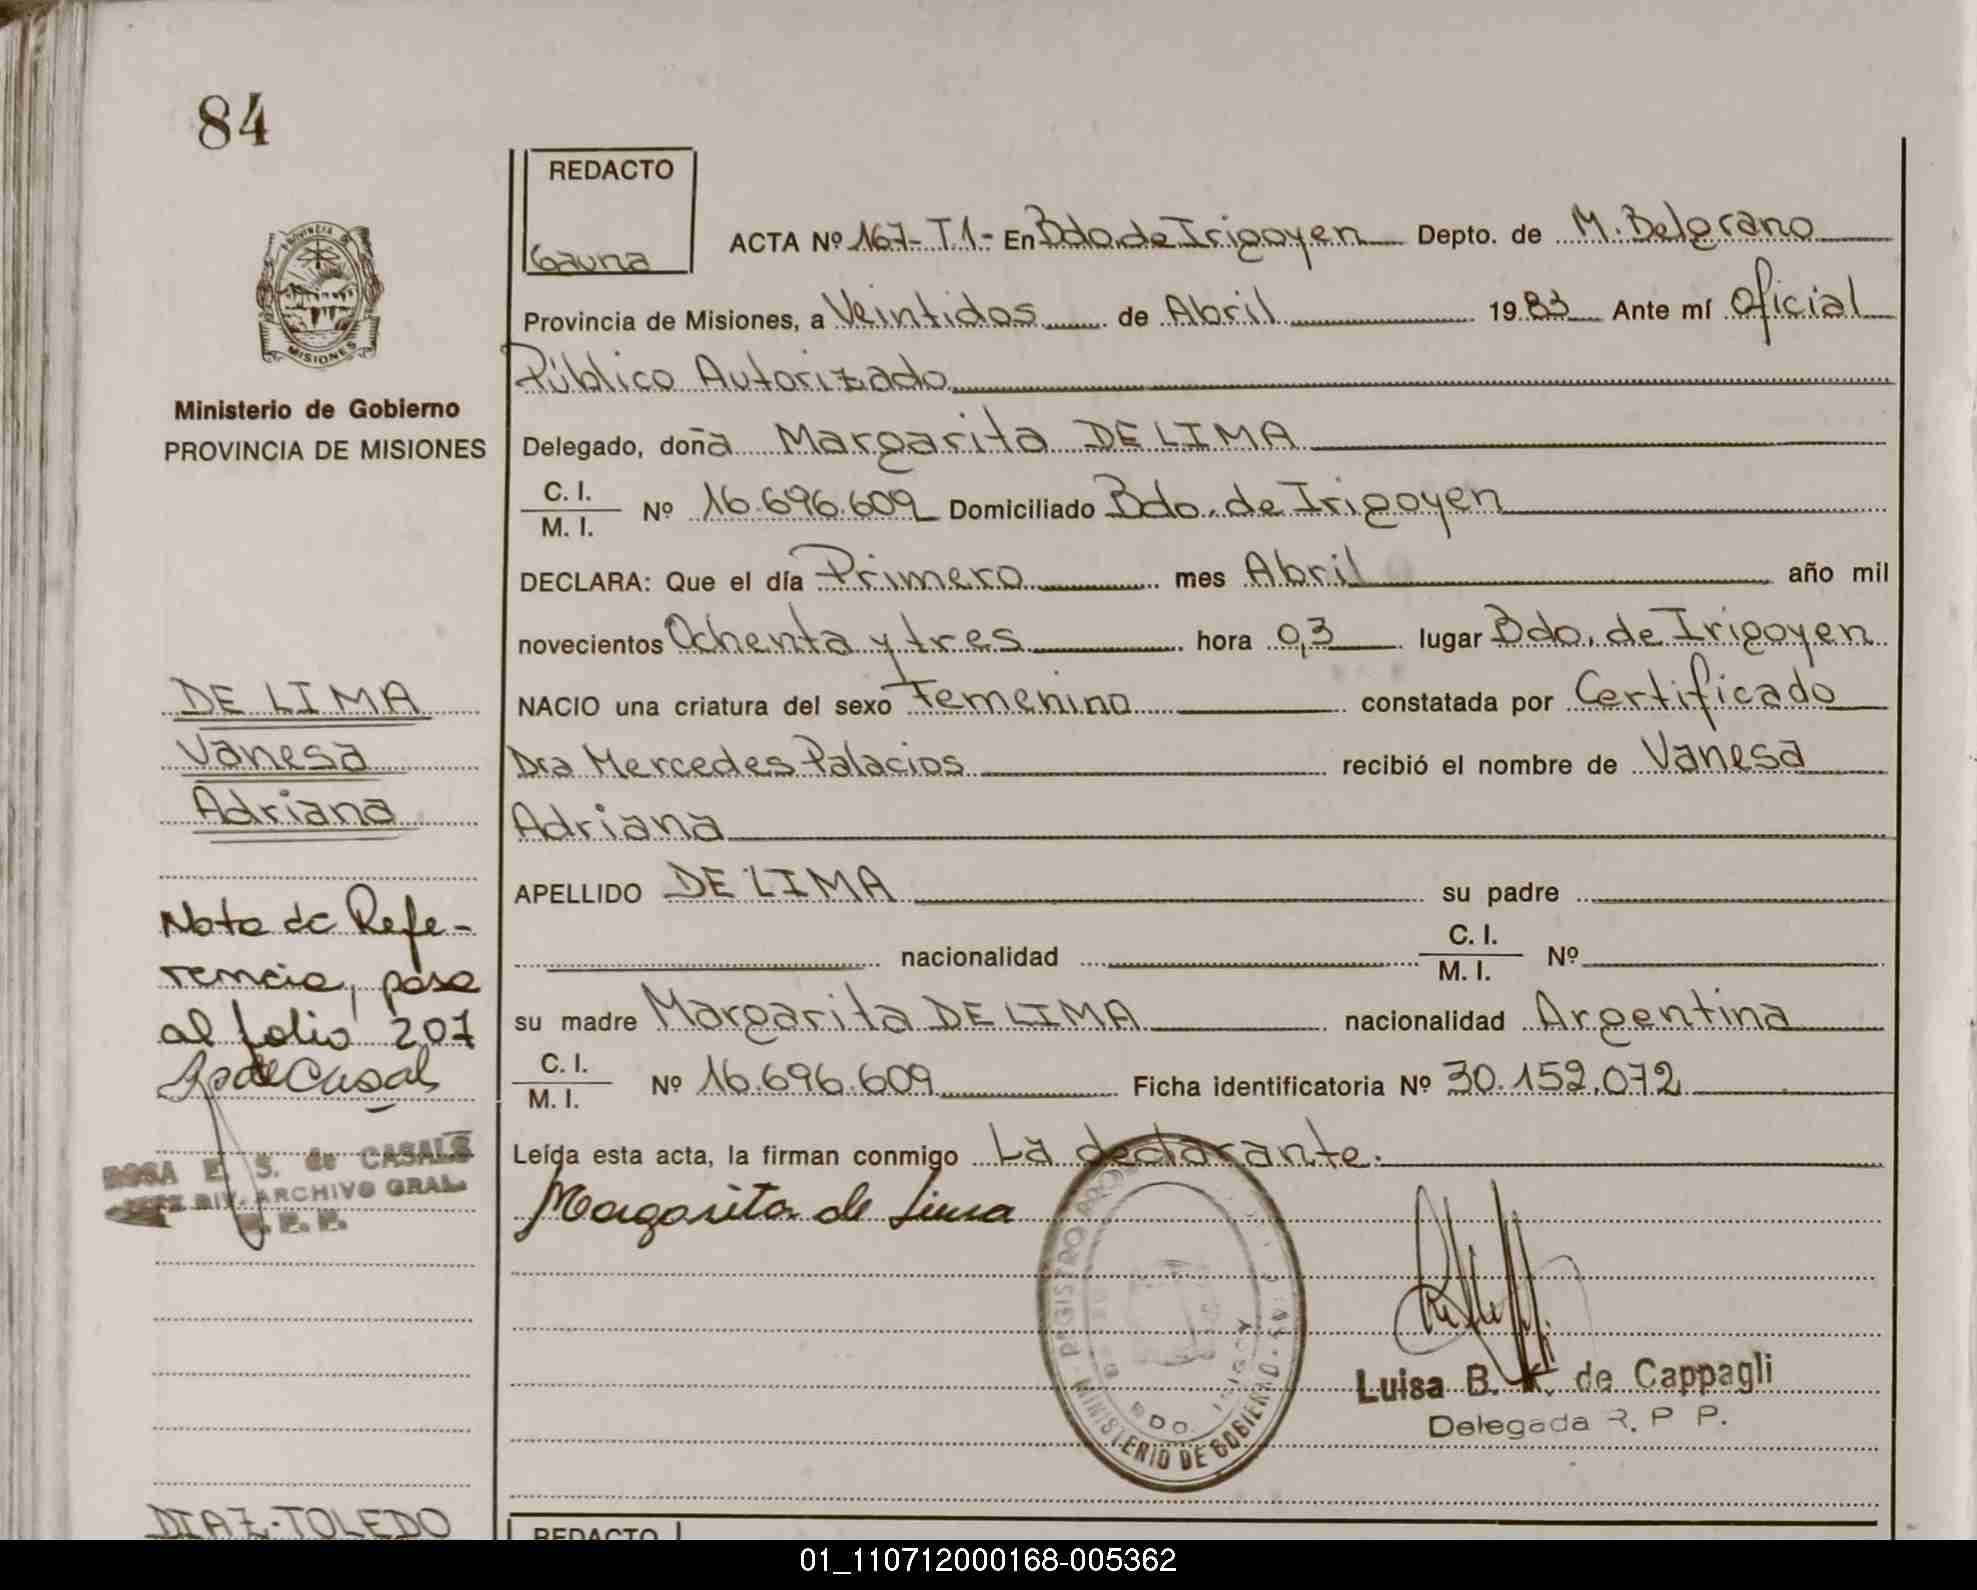 84
REDACTO
Gauna
ACTA Nº 167- T1- En Bdo. de Irigoyen Depto. de M. Belgrano
Provincia de Misiones, a Veintidos de Abril 1983 Ante mí Oficial
Público Autorizado
Delegado, doña Margarita DE LIMA
C. I.
M. I. Nº 16.696.609 Domiciliado Bdo. de Irigoyen
DECLARA: Que el día Primero mes Abril año mil
novecientos Ochenta y tres hora 0,3 lugar Bdo. de Irigoyen
NACIO una criatura del sexo Femenino constatada por Certificado
Dra Mercedes Palacios recibió el nombre de Vanesa
Adriana
APELLIDO DE LIMA su padre
nacionalidad C. I.
M. I. Nº
su madre Margarita DE LIMA nacionalidad Argentina
C. I.
M. I. Nº 16.696.609 Ficha identificatoria Nº 30.152.072
Leída esta acta, la firman conmigo La declarante.
Margarita de Lima
REGISTRO
MINISTERIO DE GOBIERNO
BDO. IRIGOY
Luisa B. K. de Cappagli
Delegada R. P P.
PROVINCIA DE
MISIONES
Ministerio de Gobierno
PROVINCIA DE MISIONES
DE LIMA
Vanesa
Adriana
Nota de Refe-
rencia, pasa
al folio 207
de Casals
ROSA E. S. de CASALS
JEFE DIV. ARCHIVO GRAL.
DIAZ-TOLEDO
REDACTO
01_110712000168-005362